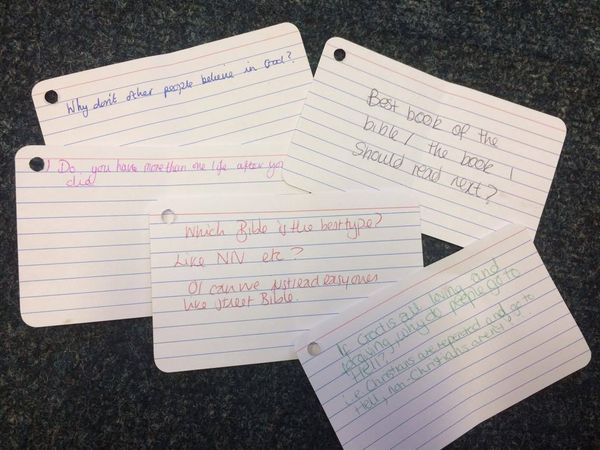 Why don't other people believe in God?
Best book of the
bible / the book I
Should read next?
Do you have more than one life after you
did
Which Bible is the best type?
Like NIV etc ?
Or can we just read easy ones
like Street Bible.
If God is all loving and
forgiving, why do people go to
Hell?
i.e Christians are repented and go to
Hell, non-Christians aren't